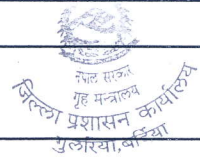 नेपाल सरकार
गृह मन्त्रालय
जिल्ला प्रशासन कार्यालय
गुलरिया, बर्दिया